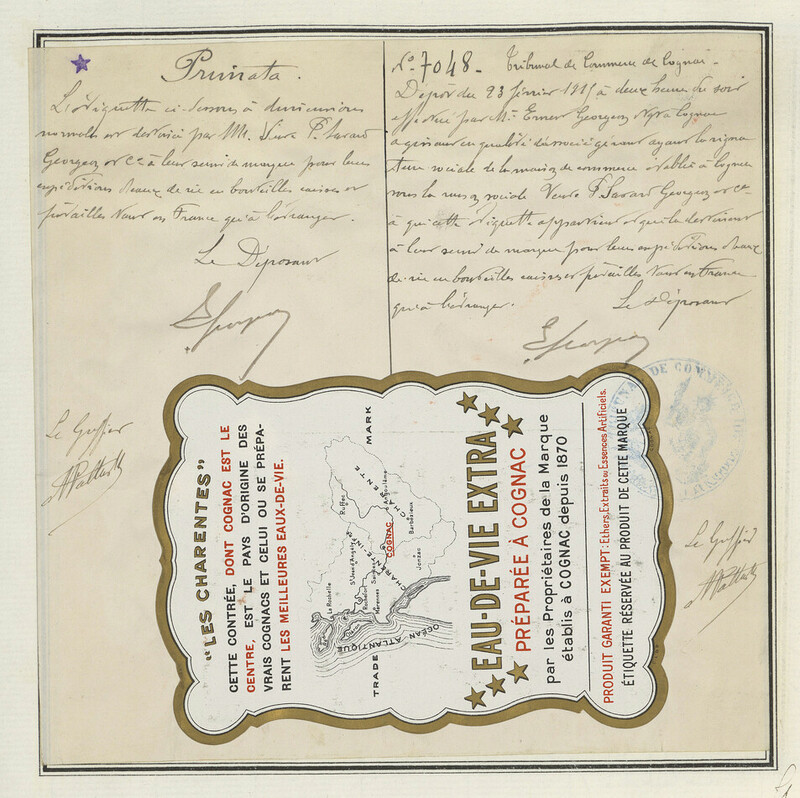 Primata.
L'étiquette ci-dessous, à dimensions
normales est destinée par MM. Veuve P. Savard
Georgeon et Cie à leur servir de marque pour leurs
expéditions d'eaux de vie en bouteilles caisses et
futailles tant en France qu'à l'étranger.
Le Déposant
Le Greffier
No 7048 - Tribunal de Commerce de Cognac -
Dépôt du 23 février 191 à deux heures du soir
effectué par Mr Ernest Georgeon Ngt à Cognac
agissant en qualité d'associé gérant ayant la signa-
ture sociale de la maison de commerce établie à Cognac
sous la raison sociale Veuve P. Savard Georgeon et Cie
à qui cette étiquette appartient et qui la destinent
à leur servir de marque pour leurs expéditions d'eaux
de vie en bouteilles caisses et futailles tant en France
qu'à l'étranger.
Le Déposant
DE COMMERCE
Le Greffier
"LES CHARENTES"
CETTE CONTRÉE, DONT COGNAC EST LE
CENTRE, EST LE PAYS D'ORIGINE DES
VRAIS COGNACS ET CELUI OU SE PRÉPA-
RENT LES MEILLEURES EAUX-DE-VIE.
TRADE MARK
Ruffec
Angoulême
CHARENTE
La Rochelle
St Jean d'Angély
Rochefort
COGNAC
Barbézieux
Marennes
Saintes
Jonzac
CHARENTE INFRE
OCÉAN ATLANTIQUE
EAU-DE-VIE EXTRA
PRÉPARÉE À COGNAC
par les Propriétaires de la Marque
établis à COGNAC depuis 1870
PRODUIT GARANTI EXEMPT: Ethers, Extraits ou Essences Artificiels.
ÉTIQUETTE RÉSERVÉE AU PRODUIT DE CETTE MARQUE